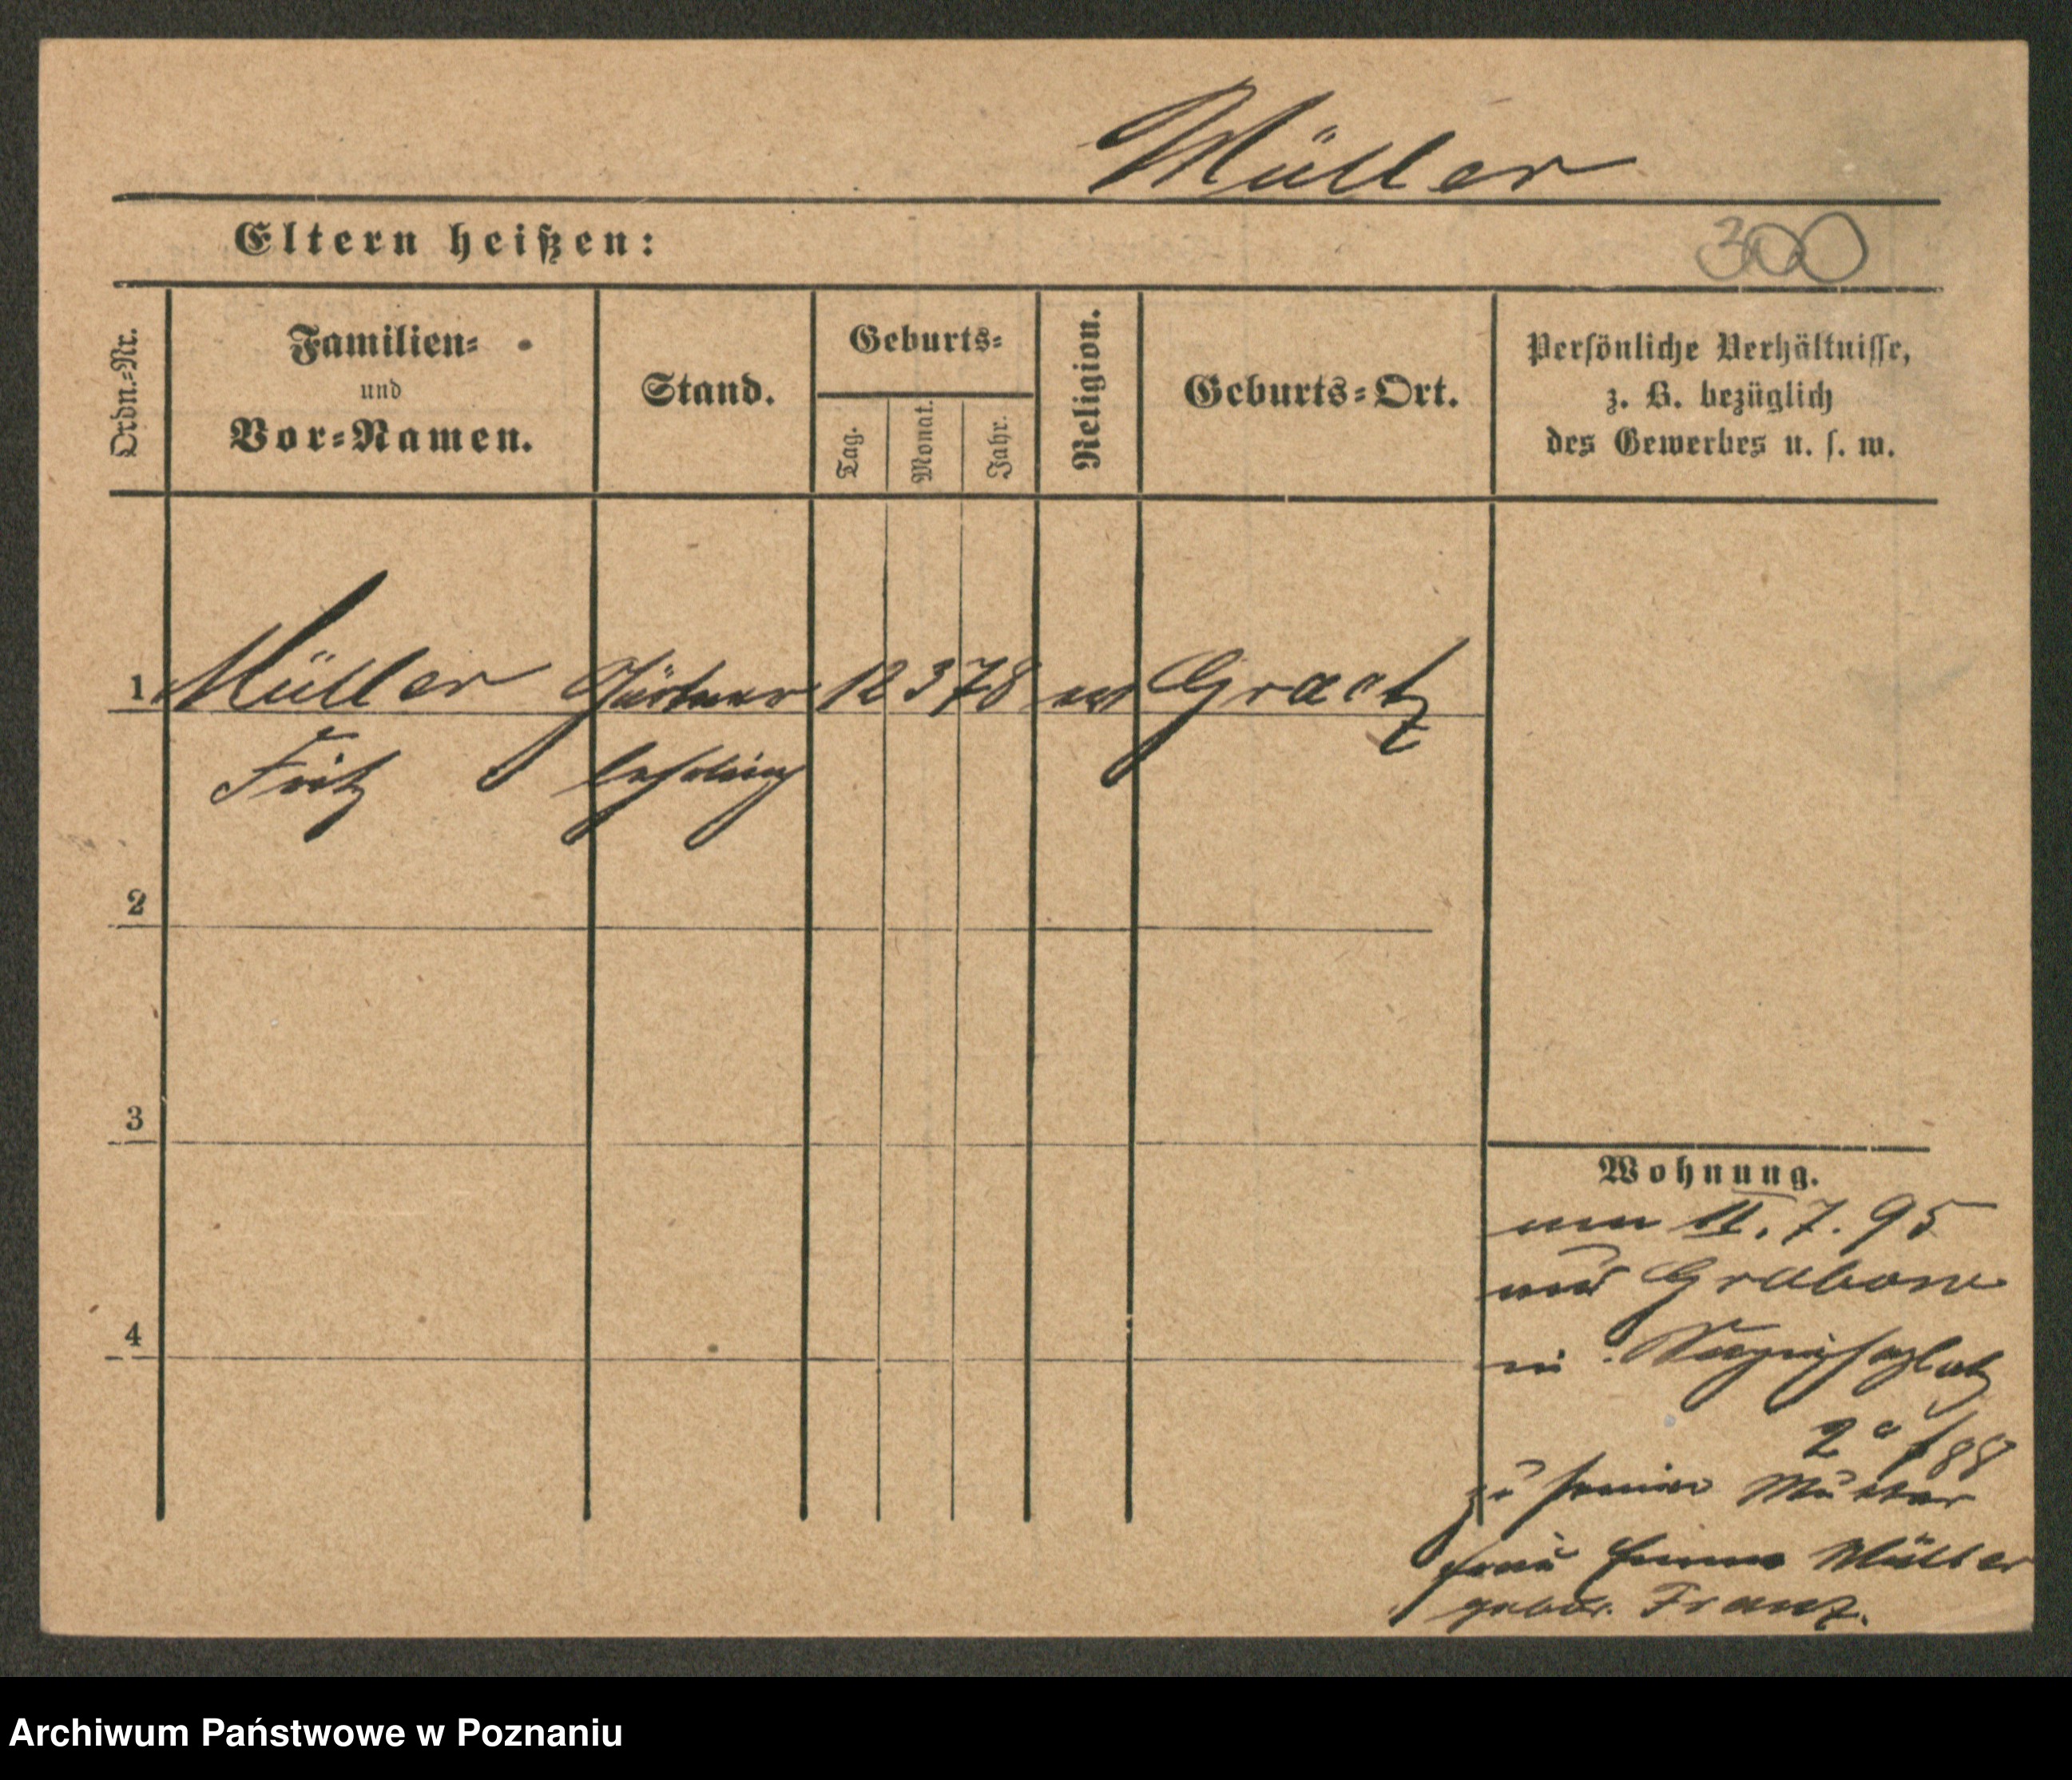 Müller
Eltern heißen:
300
Ordn.=Nr.
Familien=
und
Vor=Namen.
Stand.
Geburts=
Tag.
Monat.
Jahr.
Religion.
Geburts=Ort.
Persönliche Verhältnisse,
z. B. bezüglich
des Gewerbes u. s. w.
1 Müller Gärtner 12 3 78 ev Graetz
Fritz lehrling
2
3
4
Wohnung.
11. 7. 95
aus
in
2a
zu seiner Mutter
Frau Emma Müller
gebor. Franz.
Archiwum Państwowe w Poznaniu